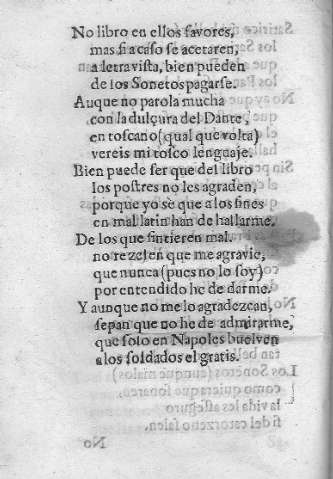 No libro en ellos favores,
mas si acaso se acetaren,
a letra vista, bien pueden
de los Sonetos pagarse.
Auque no parola mucha
con la dulçura del Dante,
en toscano (qual que volta)
vereis mi tosco lenguaje.
Bien puede ser que del libro
los postres no les agraden,
porque yo se que a los fines
en mal latin han de hallarme.
De los que sintieren mal.
no rezelen que me agravie,
que nunca (pues no lo soy)
por entendido he de darme.
Y aunque no me lo agradezcan,
sepan que no he de admirarme,
que solo en Napoles buelven
a los soldados el gratis.